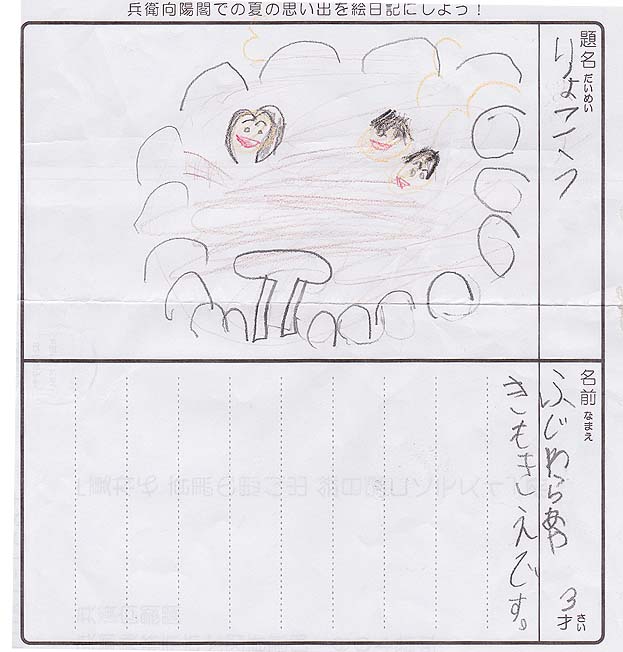 兵衛向陽閣での夏の思い出を絵日記にしよう!
題名 だいめい
りょこう
名前 なまえ
ふじわらあや 3才 さい
きもきしえです。